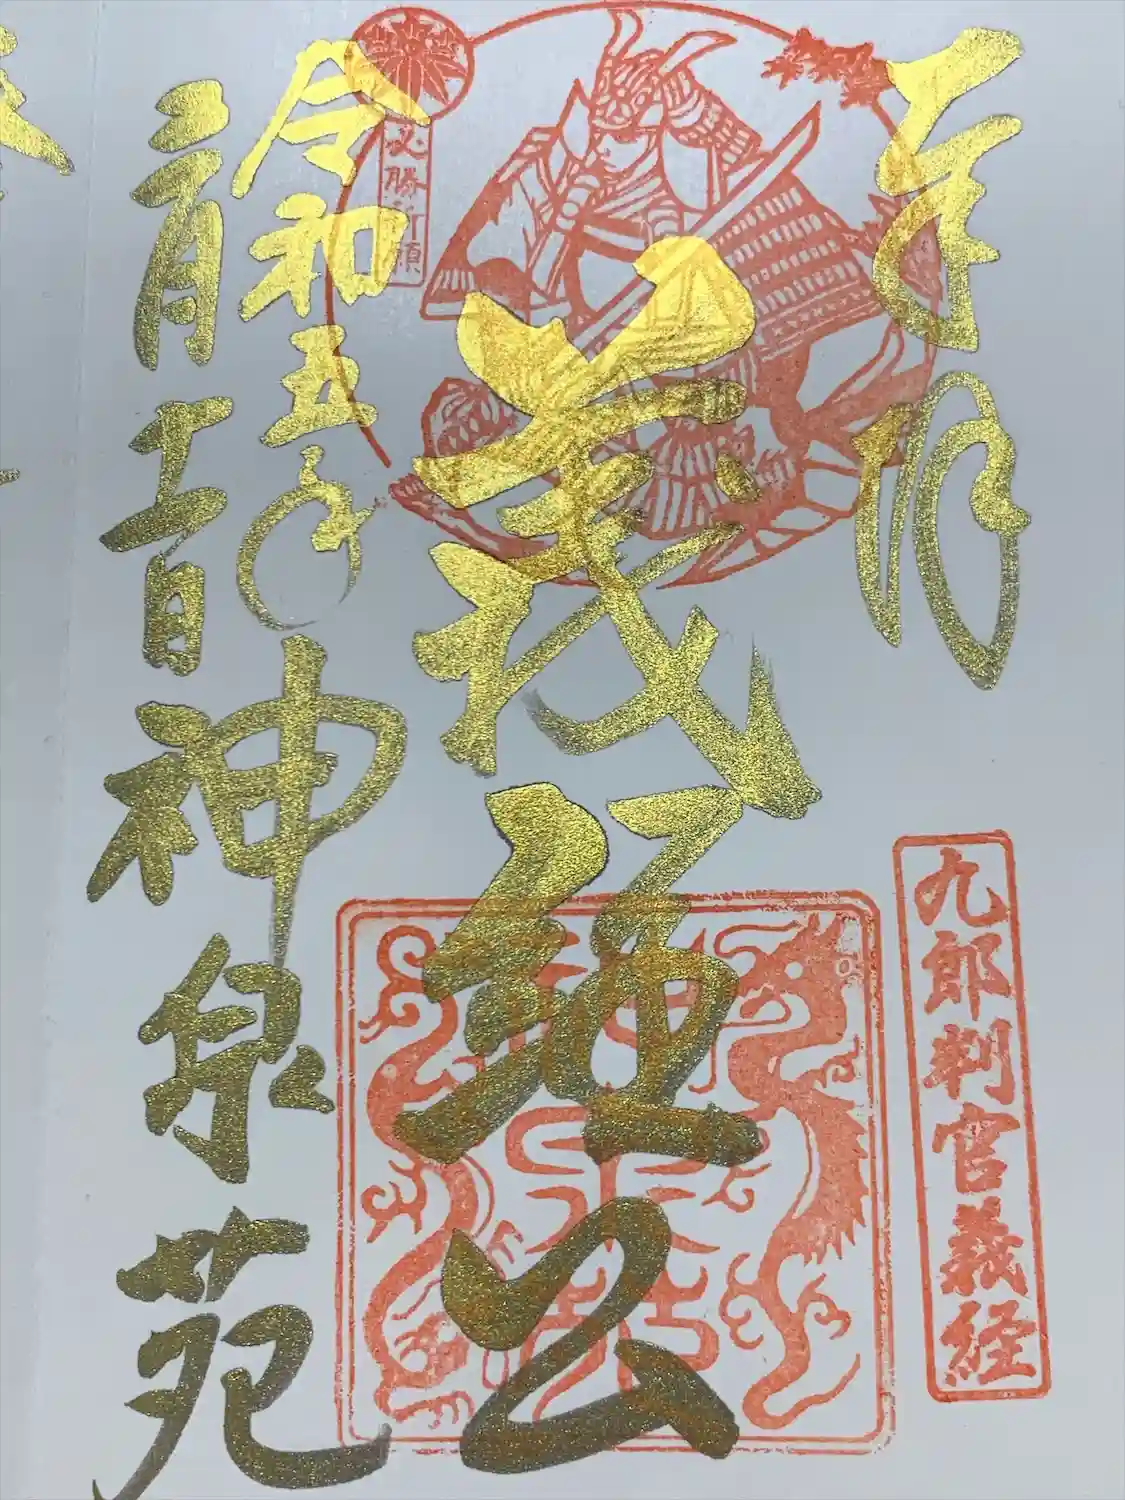 奉拝
九郎判官義経
義経公
必勝祈願
令和五年
二月十二日
神泉苑